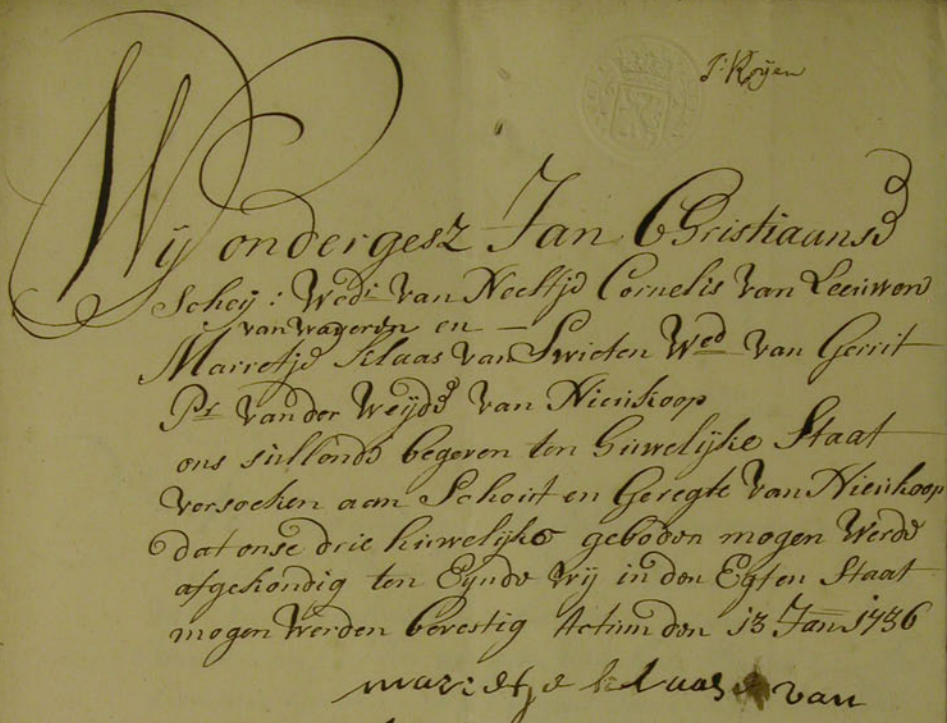 J: Royen
Wij ondergesz Jan Christiaansd
Scheij: Wedr van Neeltje Cornelis van Leeuwen
van wageren en —
Marretje Klaas van Swieten Wed van Gerrit
Pr vander Weijde van Nieukoop
ons sullende begeven ten huwelijke Staat
versoeken aan Schout en Geregte van Nieukoop
dat onse drie huwelijkse geboden mogen Werde
afgekondig ten Eynde wij in den Egten Staat
mogen Werden bevestig Actum den 13 Jan 1736
marretje klaas van